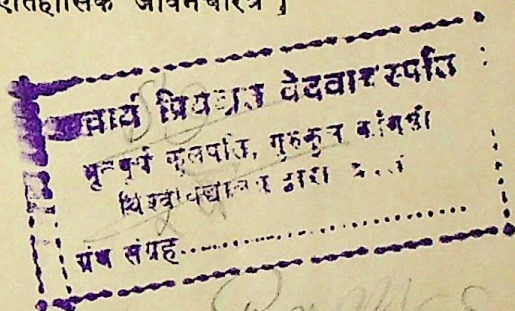 ऐतिहासिक जीवनचरित्र ]
आचार्य प्रियव्रत वेदवाचस्पति
भूतपूर्व कुलपति, गुरुकुल कांगड़ी
विश्वविद्यालय द्वारा प्रदत्त
ग्रंथ संग्रह..............................